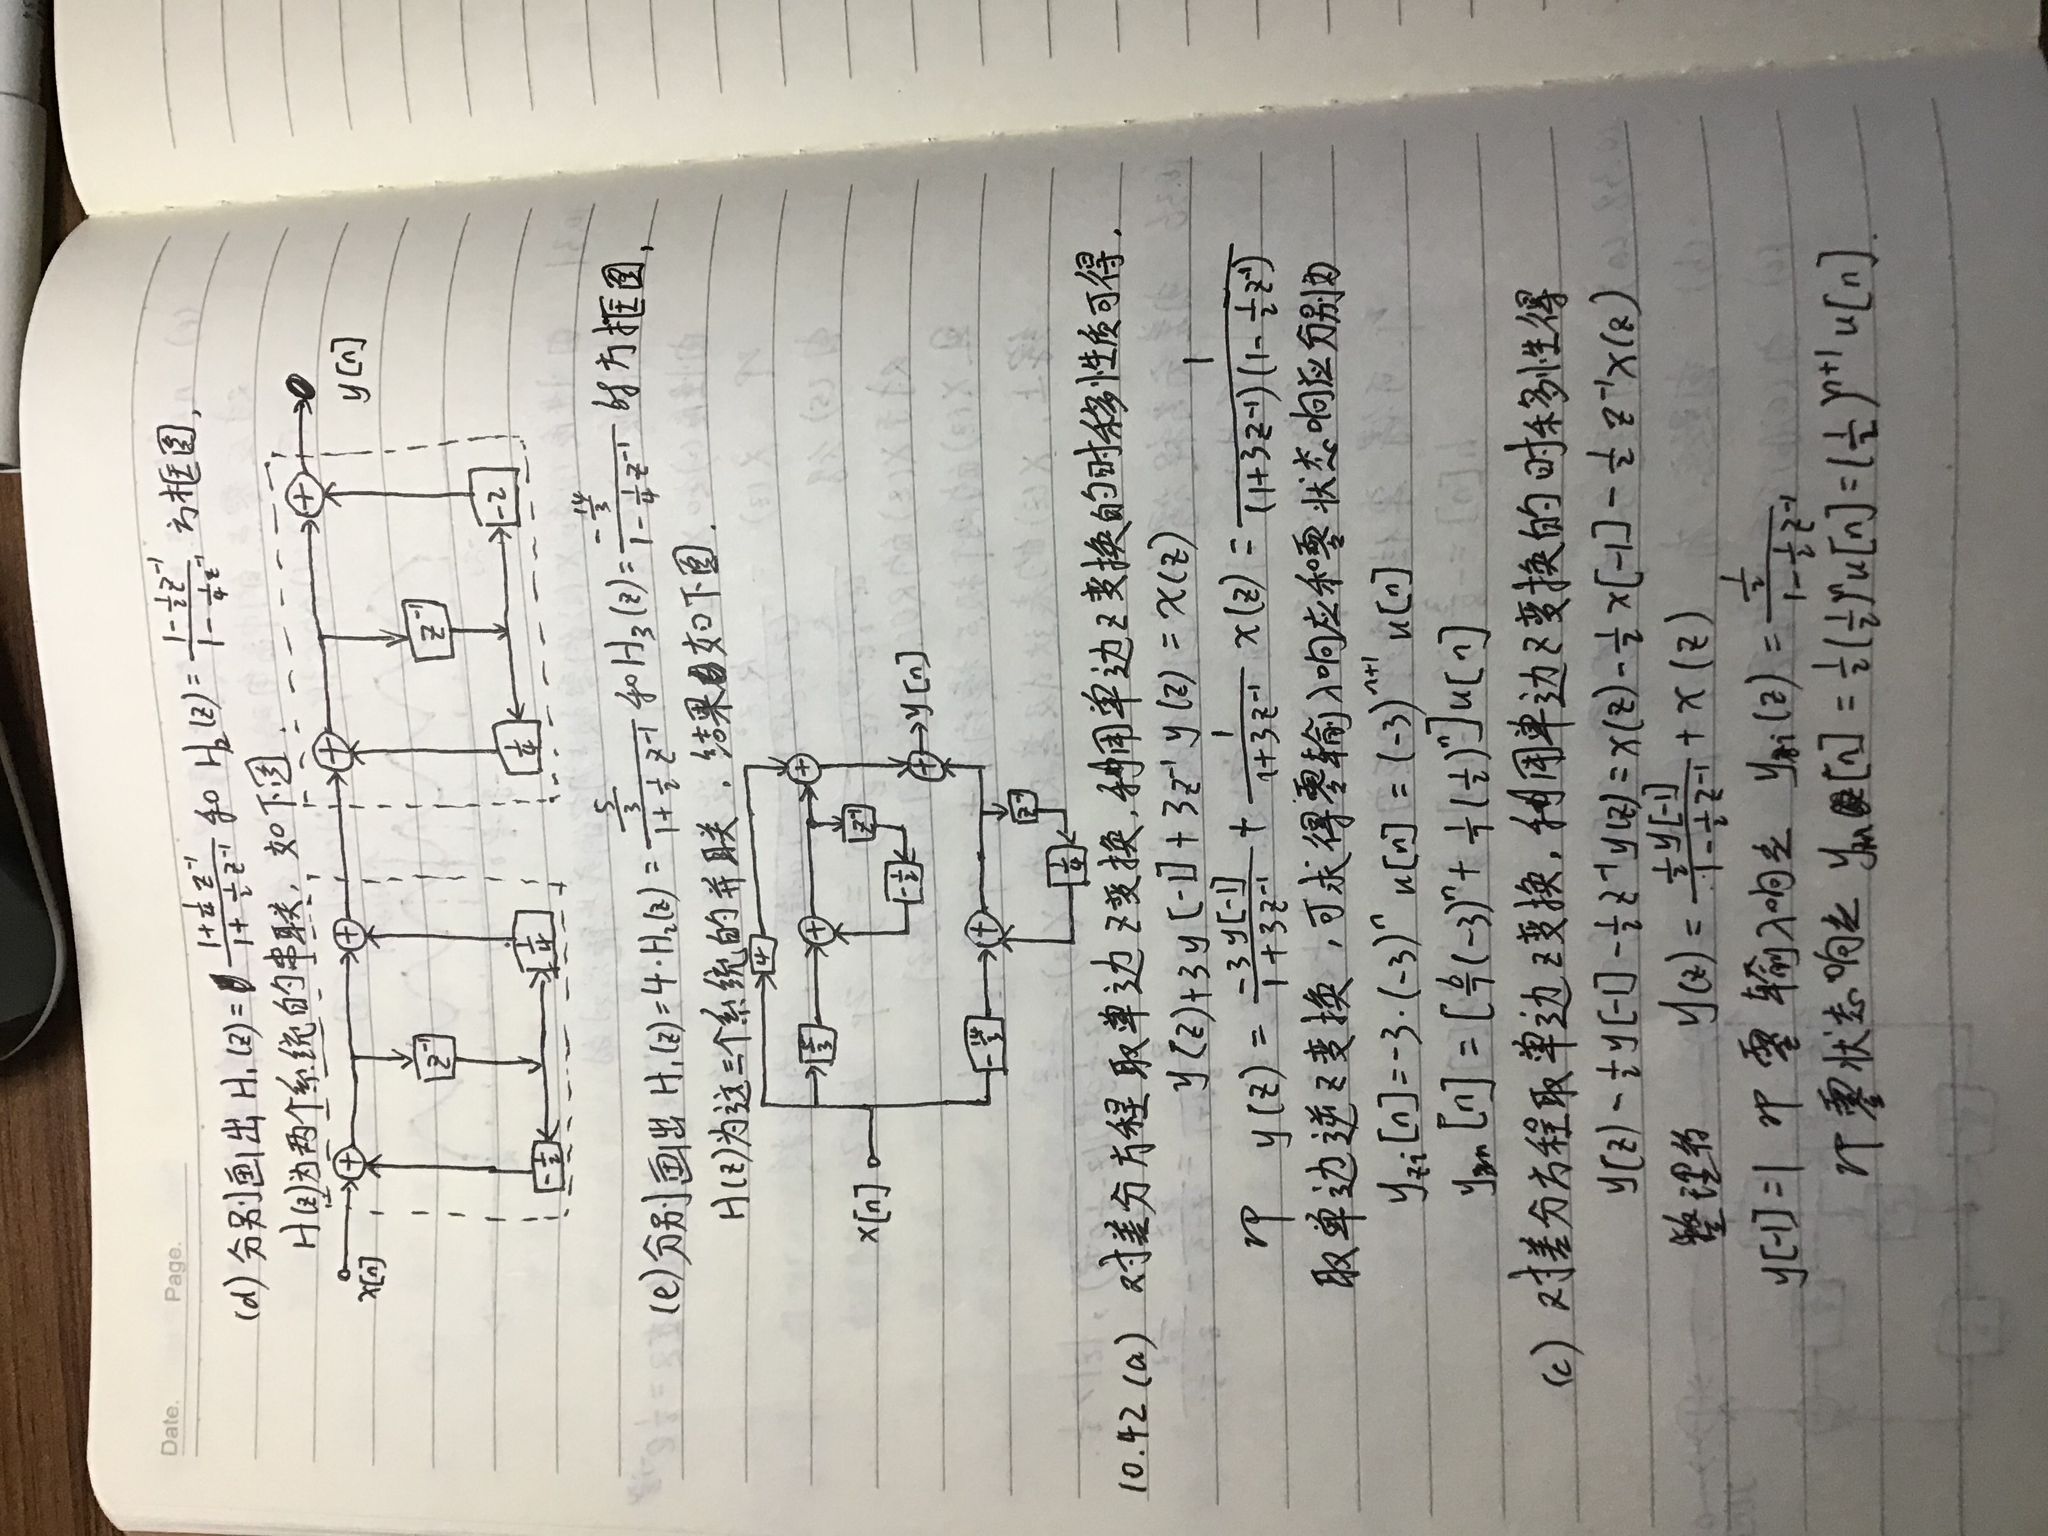 Date. Page.
(d) 分别画出 H₁(z)= (1+¼z⁻¹)/(1+½z⁻¹) 和 H₂(z)= (1-½z⁻¹)/(1-¼z⁻¹) 方框图,
H(z)为两个系统的串联, 如下图.
x[n] + + + + y[n]
z⁻¹ z⁻¹
-½ ¼ ¼ -2
(e) 分别画出 H₁(z)=4·H₂(z)= (5/3)/(1+½z⁻¹) 和 H₃(z)= (-14/3)/(1-¼z⁻¹) 的方框图,
H(z)为这三个系统的并联, 结果如下图.
4
5/3 + +
z⁻¹
x[n]
-½
+ y[n]
-14/3 +
z⁻¹
¼
10.42 (a) 对差分方程取单边z变换,利用单边z变换的时移性质可得.
y(z)+3y[-1]+3z⁻¹y(z)=x(z)
即 y(z)= (-3y[-1])/(1+3z⁻¹) + 1/(1+3z⁻¹) x(z) = 1/((1+3z⁻¹)(1-½z⁻¹))
取单边逆z变换,可求得零输入响应和零状态响应分别为
y_zi[n]=-3·(-3)ⁿ u[n]=(-3)ⁿ⁺¹ u[n]
[n]=[6/7(-3)ⁿ+1/7(½)ⁿ]u[n]
(c) 对差分方程取单边z变换,利用单边z变换的时移性得
y(z)-½y[-1]-½z⁻¹y(z)=x(z)-½x[-1]-½z⁻¹x(z)
整理为 y(z)= (½y[-1])/(1-½z⁻¹) + x(z)
y[-1]=1 即 零输入响应 y_zi(z)= ½/(1-½z⁻¹)
即零状态响应 [n]=½(½)ⁿu[n]=(½)ⁿ⁺¹ u[n].